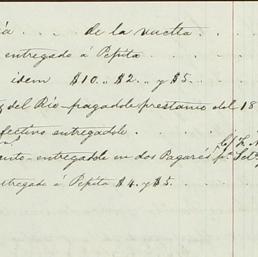 de la vuelta
entregado á Pepita
idem $10.. $2.. y $5..
del Rio pagadole prestamo del 18
efectivo entregadole
entregadole en dos Pagarés pr. Set
entregado á Pepita $4. y $5.